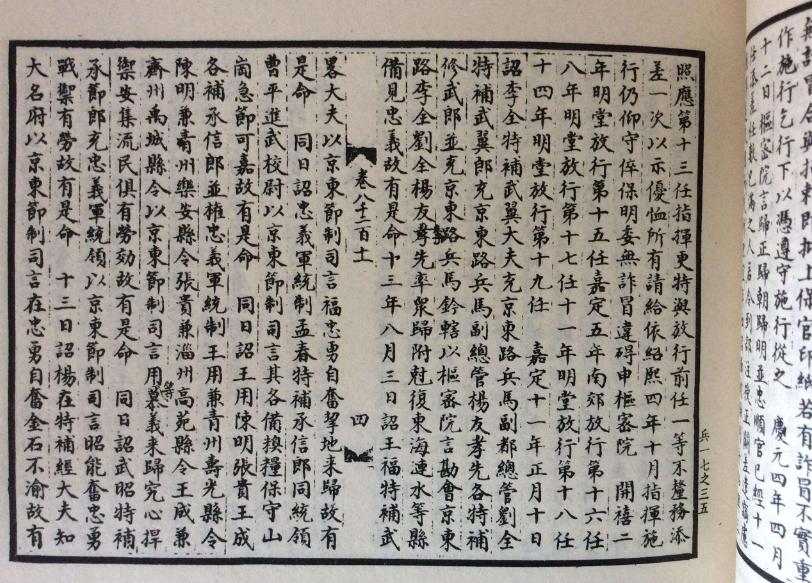 作施行乞行下以憑遵施行從之　慶元四年四月
十二日樞密院言歸正歸朝歸明並忠順官已經十一
任添差任數已滿之人
兵一七之三五
照應第十三任指揮更特與放行前任一等不釐務添
差一次以示優恤所有請給依紹熙四年十月指揮施
行仍仰守倅保明委無詐冒違碍申樞密院　開禧二
年明堂放行第十五任嘉定五年南郊放行第十六任
八年明堂放行第十七任十一年明堂放行第十八任
十四年明堂放行第十九任　嘉定十一年正月十日
詔李全特補武翼大夫充京東路兵馬副都總管劉全
特補武翼郎充京東路兵馬副總管楊友孝先各特補
修武郎並充京東路兵馬鈐轄以樞密院言勘會京東
路李全劉全楊友孝先率衆歸附剋復東海漣水等縣
備見忠義故有是命十三年八月三日詔王福特補武
卷八千二百十一
四
畧大夫以京東節制司言福忠勇自奮挈地来歸故有
是命　同日詔忠義軍統制孟春特補承信郎同統領
曹平進武校尉以京東節制司言其各備糗糧保守山
崗急節可嘉故有是命　同日詔王用陳明張貴王成
各補承信郎並權忠義軍統制王用兼青州壽光縣令
陳明兼青州樂安縣令張貴兼淄州高苑縣令王成兼
齊州禹城縣令以京東節制司言用等慕義来歸究心捍
禦安集流民俱有勞効故有是命　同日詔武昭特補
承節郎充忠義軍統領以京東節制司言昭能奮忠勇
戰禦有勞故有是命　十三日詔楊在特補經大夫知
大名府以京東節制司言在忠勇自奮金石不渝故有